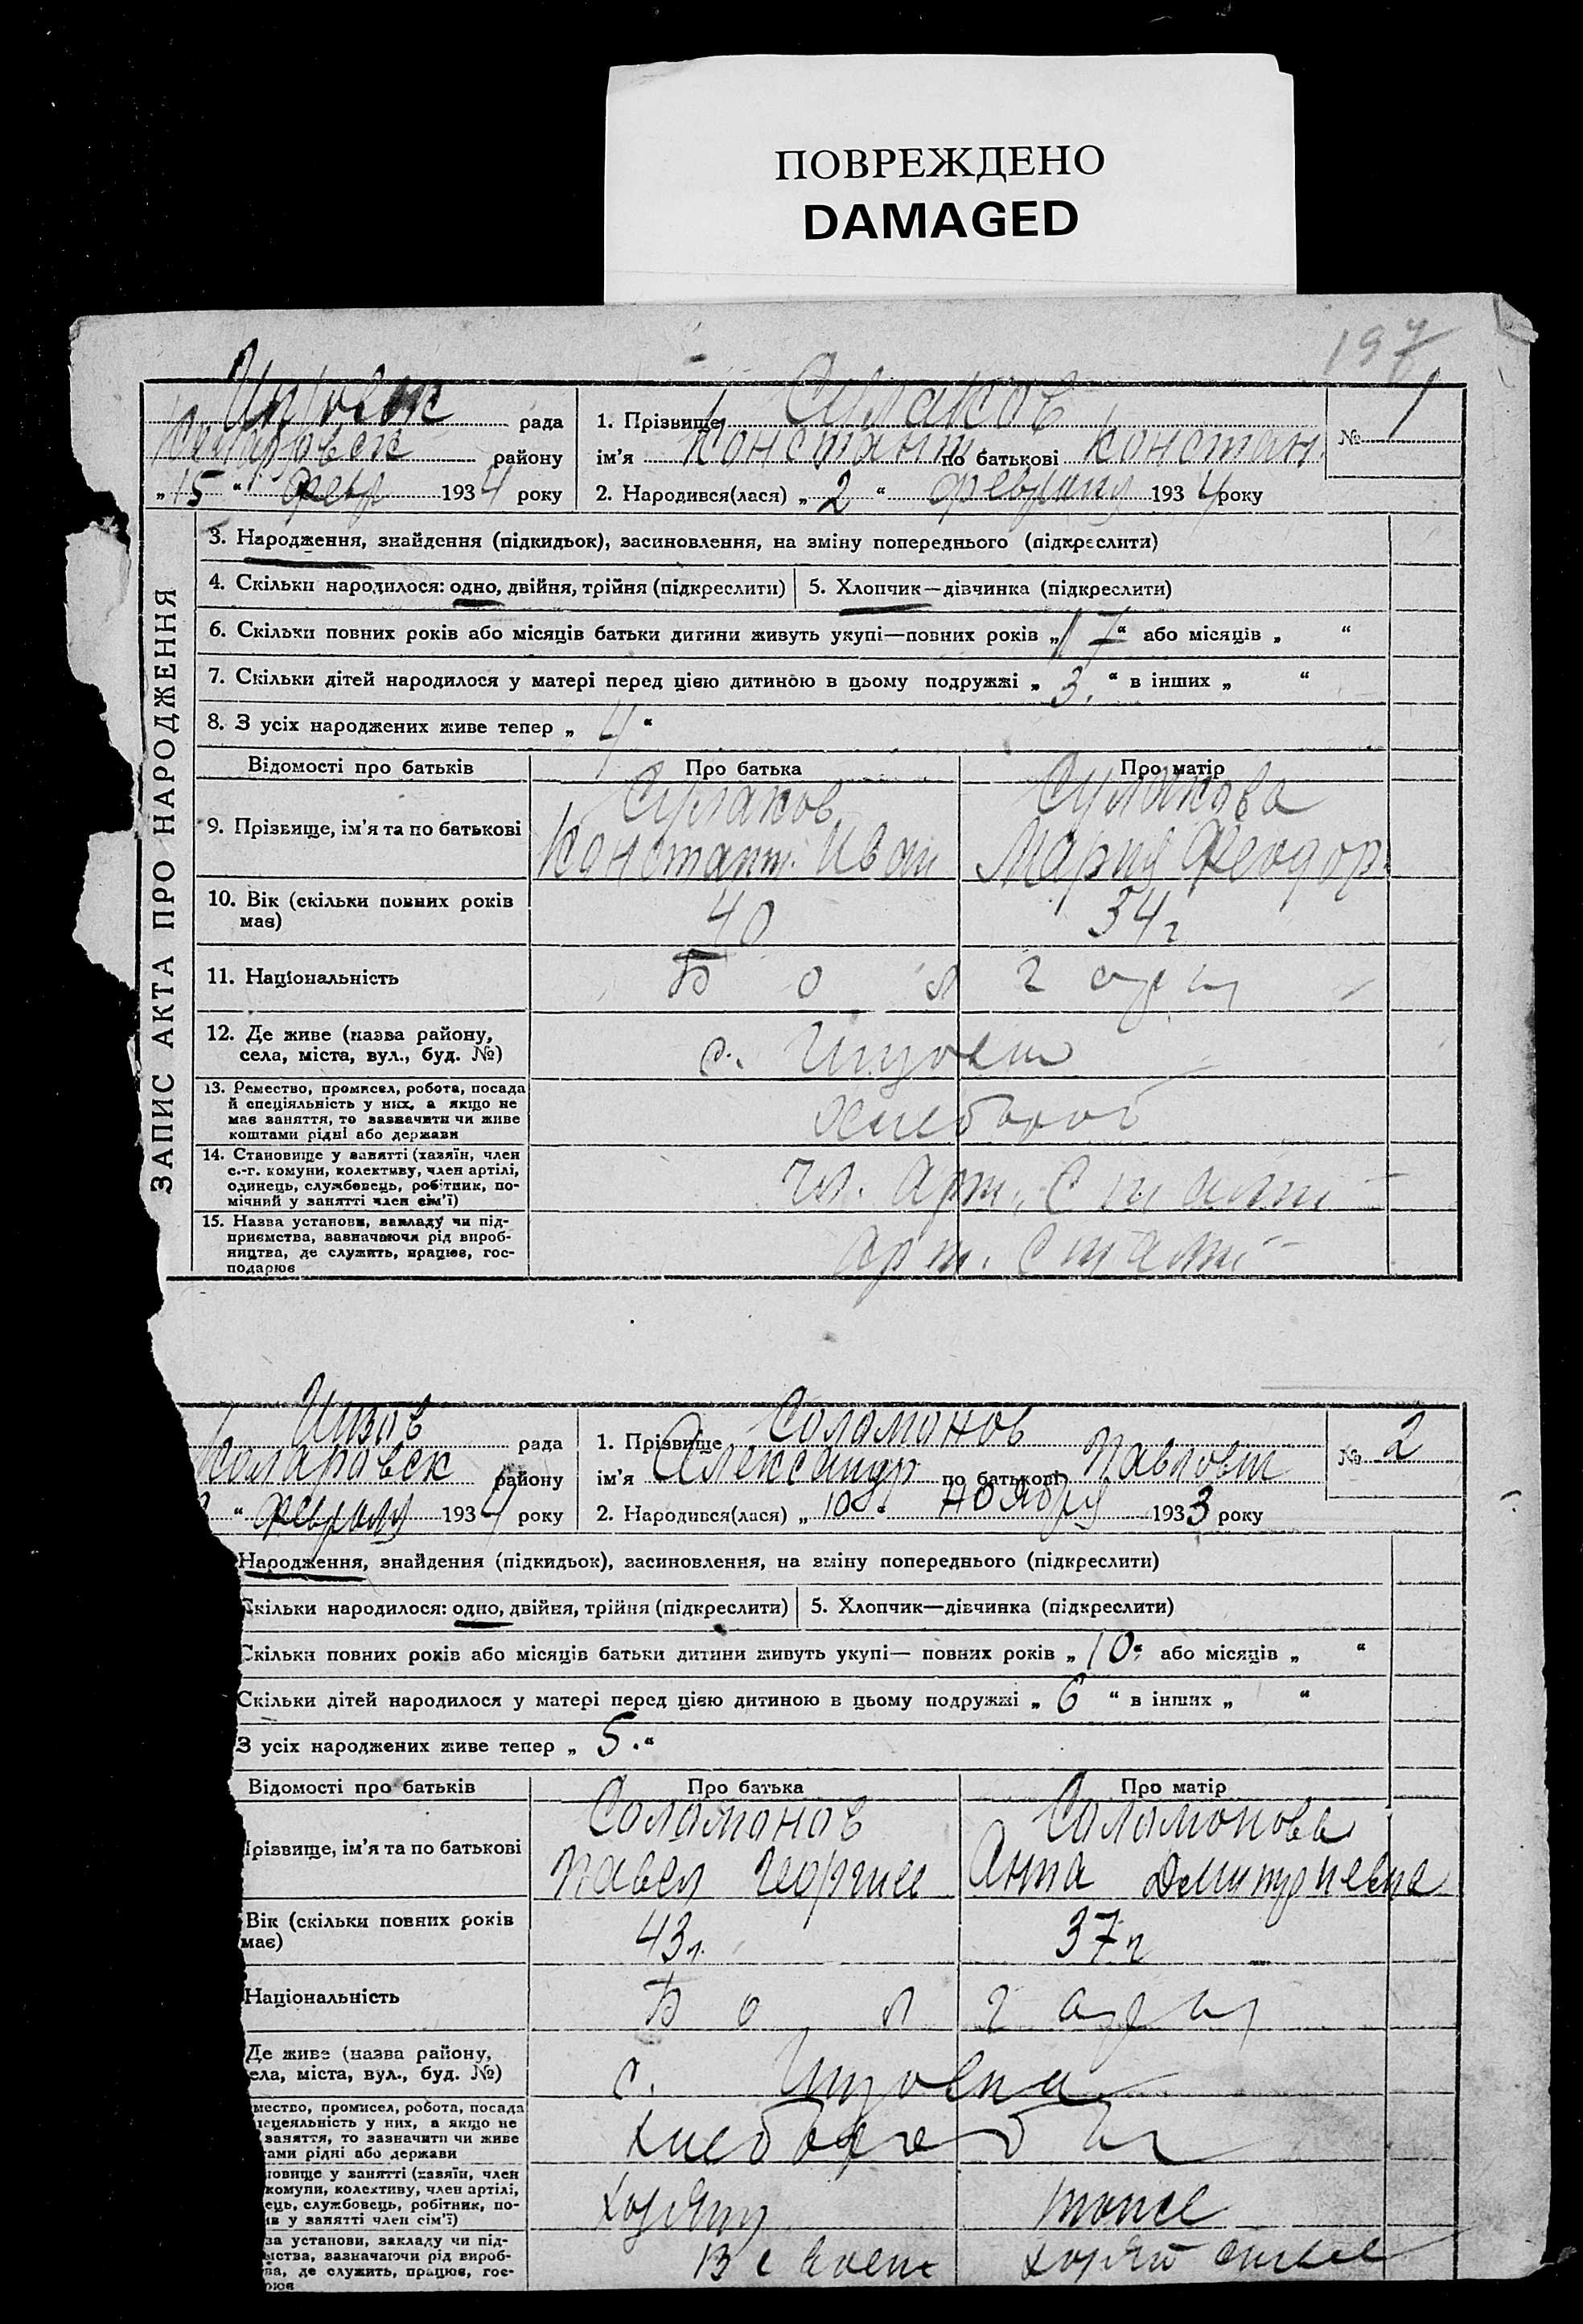 ПОВРЕЖДЕНО
DAMAGED
197
рада
району
„15“ Февр 1934 року
1. Прізвище Сулаков
ім'я Константин по батькові Констан.
2. Народився(лася) „2“ февраля 1934 року
№ 1
ЗАПИС АКТА ПРО НАРОДЖЕННЯ
3. Народження, знайдення (підкидьок), засиновлення, на зміну попереднього (підкреслити)
4. Скільки народилося: одно, двійня, трійня (підкреслити)
5. Хлопчик—дівчинка (підкреслити)
6. Скільки повних років або місяців батьки дитини живуть укупі—повних років „17“ або місяців „ “
7. Скільки дітей народилося у матері перед цією дитиною в цьому подружжі „3.“ в інших „ “
8. З усіх народжених живе тепер „4“
Відомості про батьків Про батька Про матір
9. Прізвище, ім'я та по батькові
Сулаков Сулакова
Констант. Иван Мария Феодор.
10. Вік (скільки повних років
має)
40 34 г
11. Національність Болгары
12. Де живе (назва району,
села, міста, вул., буд. №)
с.
13. Ремество, промисел, робота, посада
й спеціяльність у них, а якщо не
має заняття, то зазначити чи живе
коштами рідні або держави
хлебороб
14. Становище у занятті (хазяїн, член
с.-г. комуни, колективу, член артілі,
одинець, службовець, робітник, по-
мічний у занятті член сім'ї)
чл. арт. Сталин
15. Назва установи, закладу чи під-
приємства, вазначаючи рід вироб-
ництва, де служить, працює, гос-
подарює
арт. Сталин
Инзов рада
Коларовск району
“ февраля 1934 року
1. Прізвище Соломонов
ім'я Александр по батькові Павлович
2. Народився(лася) „10“ ноября 1933 року
№ 2
Народження, знайдення (підкидьок), засиновлення, на зміну попереднього (підкреслити)
Скільки народилося: одно, двійня, трійня (підкреслити)
5. Хлопчик—дівчинка (підкреслити)
Скільки повних років або місяців батьки дитини живуть укупі— повних років „10“ або місяців „ “
Скільки дітей народилося у матері перед цією дитиною в цьому подружжі „6“ в інших „ “
З усіх народжених живе тепер „5.“
Відомості про батьків Про батька Про матір
Прізвище, ім'я та по батькові
Соломонов Соломонова
Павел Георгиев Анна Дмитриевна
Вік (скільки повних років
має)
43 г. 37 г
Національність Болгары
Де живе (назва району,
села, міста, вул., буд. №)
с. Инзовка
мество, промисел, робота, посада
пецеяльність у них, а якщо не
заняття, то зазначити чи живе
тами рідні або держави
хлебороб
новище у занятті (хазяїн, член
комуни, колективу, член артілі,
ець, службовець, робітник, по-
ив у занятті член сім'ї)
хозяин тоже
за установи, закладу чи під-
мства, вазначаючи рід вироб-
ва, де служить, працює, гос-
рює
В своем хозяйстве